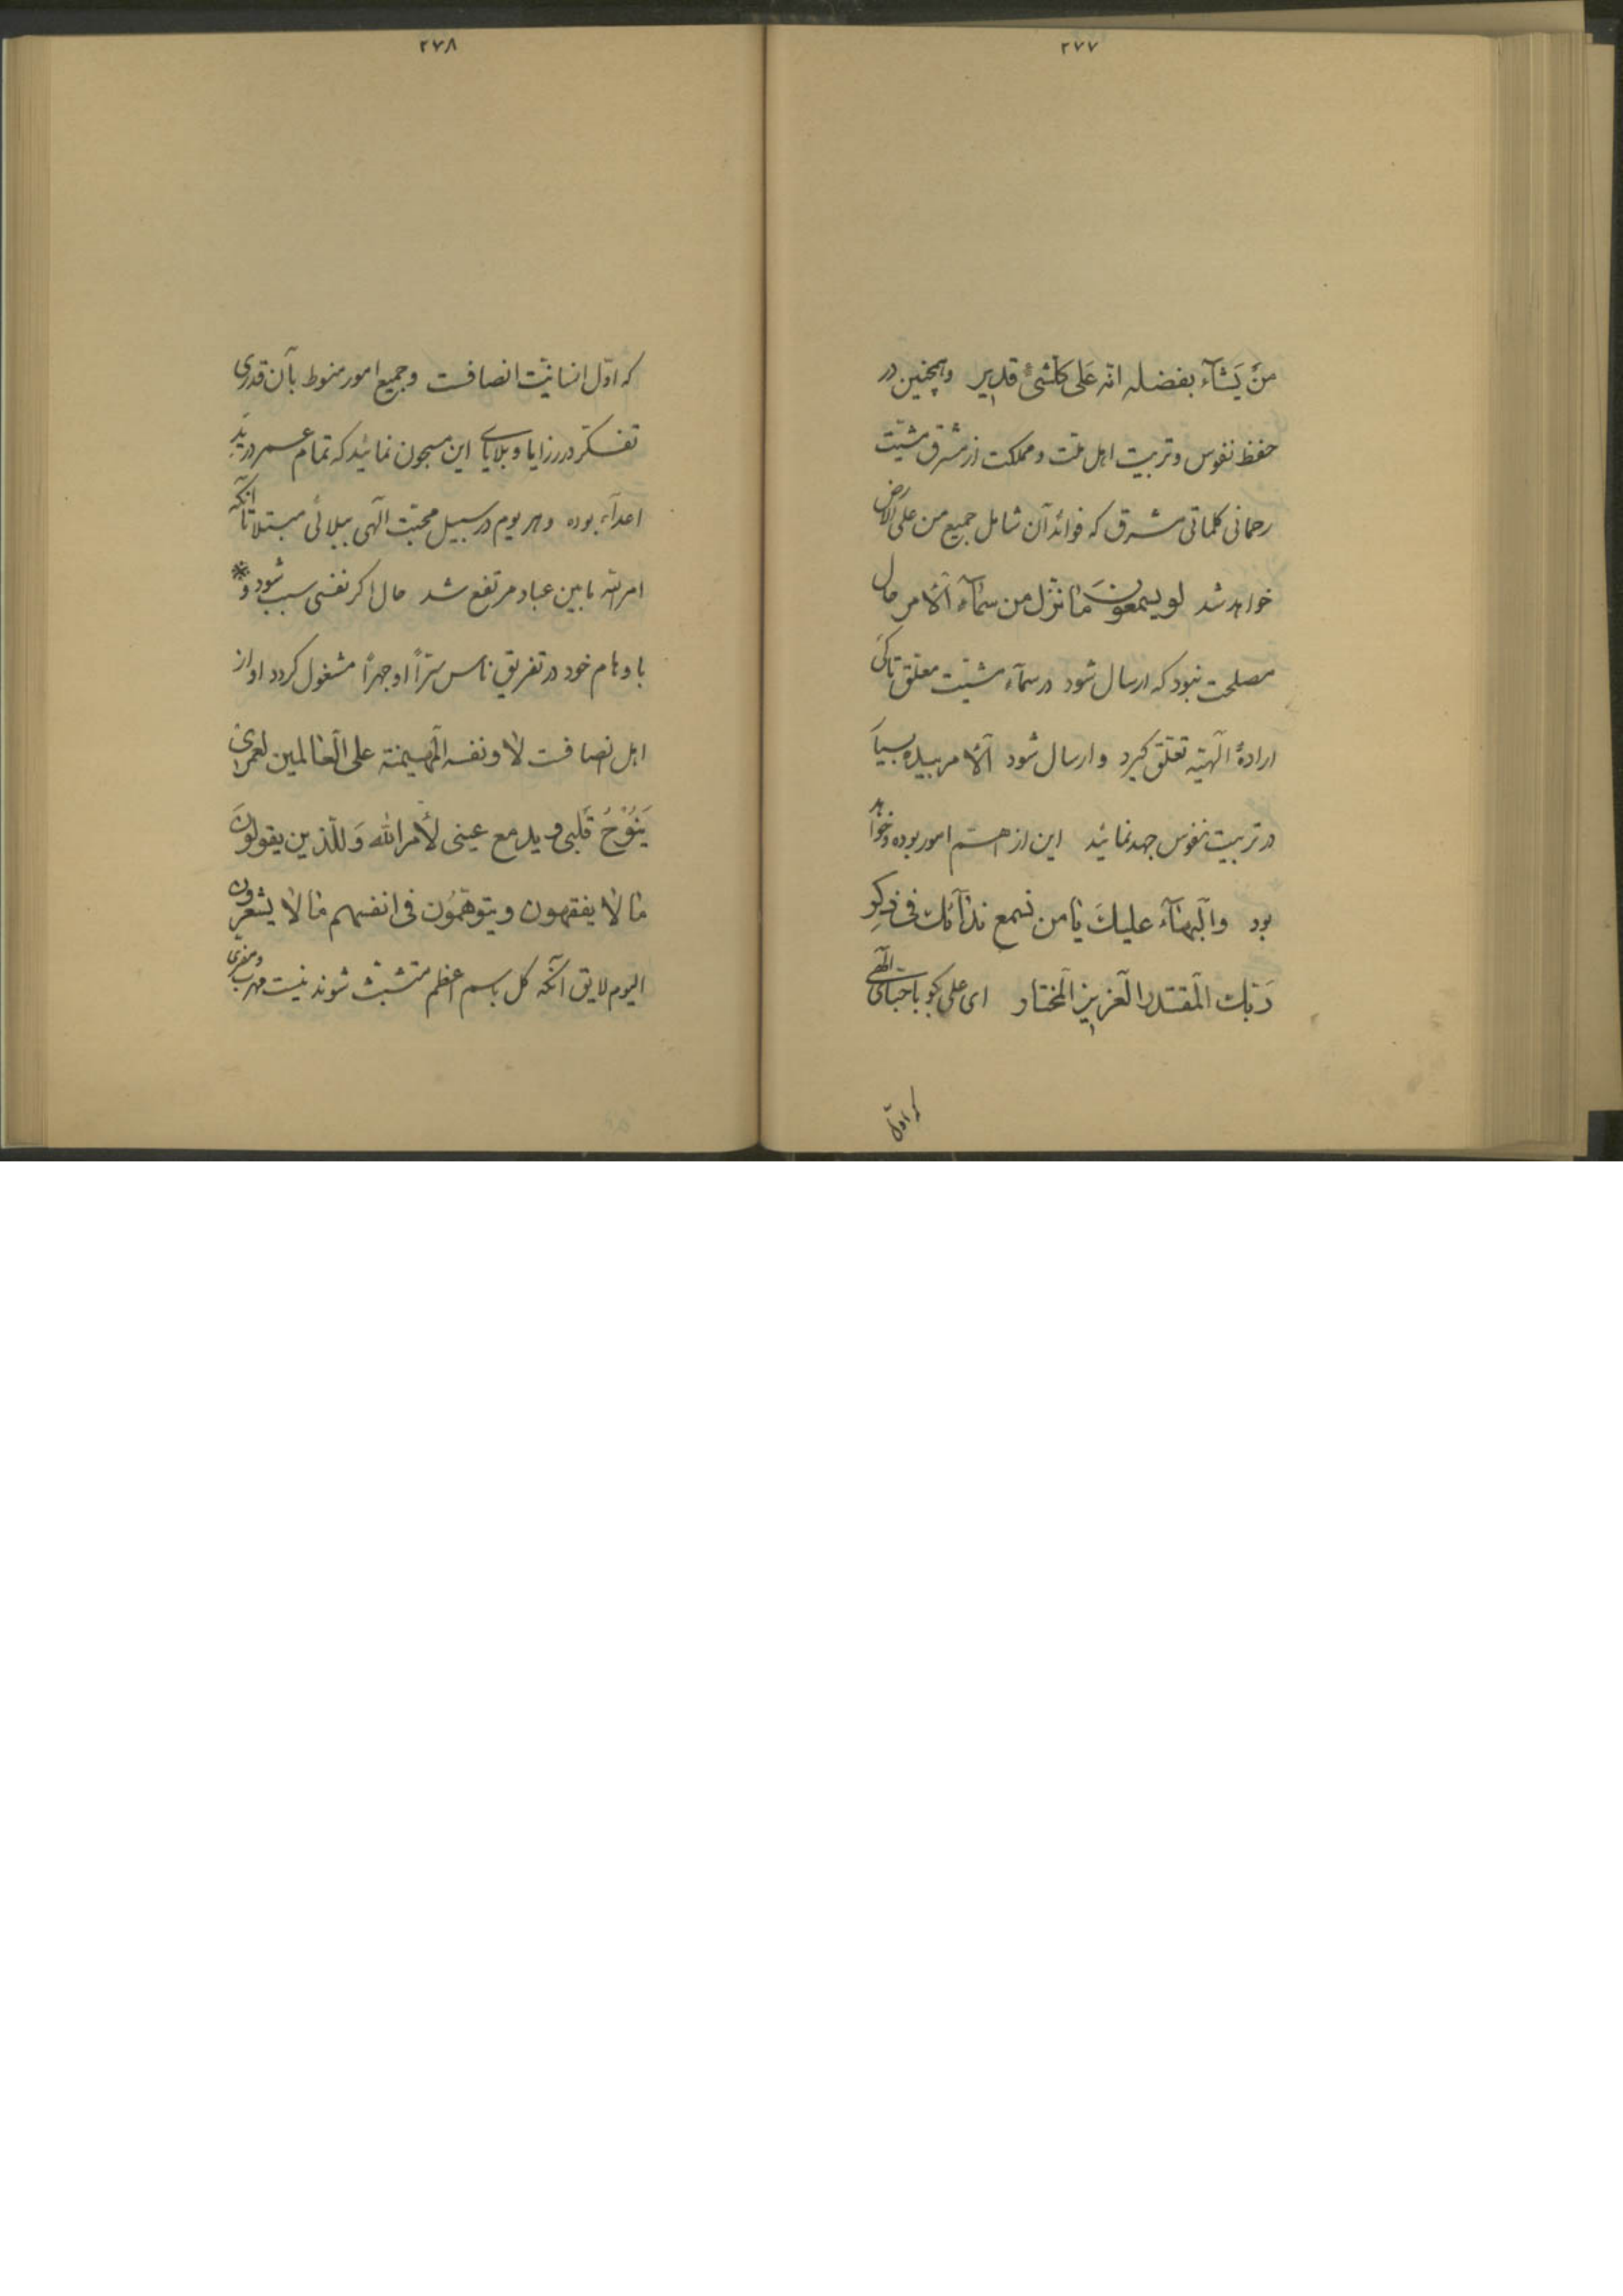 ۲۷۷
من یَشآء بفضله انّه عَلی کلّشیء قدیر و همچنین در
حفظ نفوس و تربیت اهل ملّت و مملکت از مشرق مشیّت
رحمانی کلماتی مشرق که فوائد آن شامل جمیع من علی الارض
خواهد شد لو یسمعونَ ما نزّل من سمآء الأمر حال
مصلحت نبود که ارسال شود در سمآء مشیّت معلّق تا کَی
ارادهٔ الٓهیّه تعلّق گیرد و ارسال شود الأمر بیده بسیار
در تربیت نفوس جهد نمائید این از اهمّ امور بوده و خواهد
بود والبهآء علیكَ یا من نسمع ندآئك فی ذکرِ
رَبّك المقتدر العزیز المختار ای علی بگو باحبّای الٓهی
که اوّل
۲۷۸
که اوّل انسانیّت انصافست و جمیع امور منوط بآن قدری
تفکّر در رزایا و بلایای این مسجون نمائید که تمام عمر در ید
اعدآء بوده و هر یوم در سبیل محبّت الٓهی ببلائی مبتلا تا آنکه
امر الله ما بین عباد مرتفع شد حال اگر نفسی سبب شود و
باوهام خود در تفریق ناس سرّاً او جهراً مشغول گردد او از
اهل انصافست لا و نفسه المهیمنة علی العالمین لعمری
یَنُوحُ قَلبی و یدمع عینی لأمر الله وَ للّذین یقولونَ
ما لا یفقهون و یتوهّمُون فی انفسهم ما لا یشعرون
الیوم لایق آنکه کل باسم اعظم متشبّث شوند نیست مهرب و مفرّی